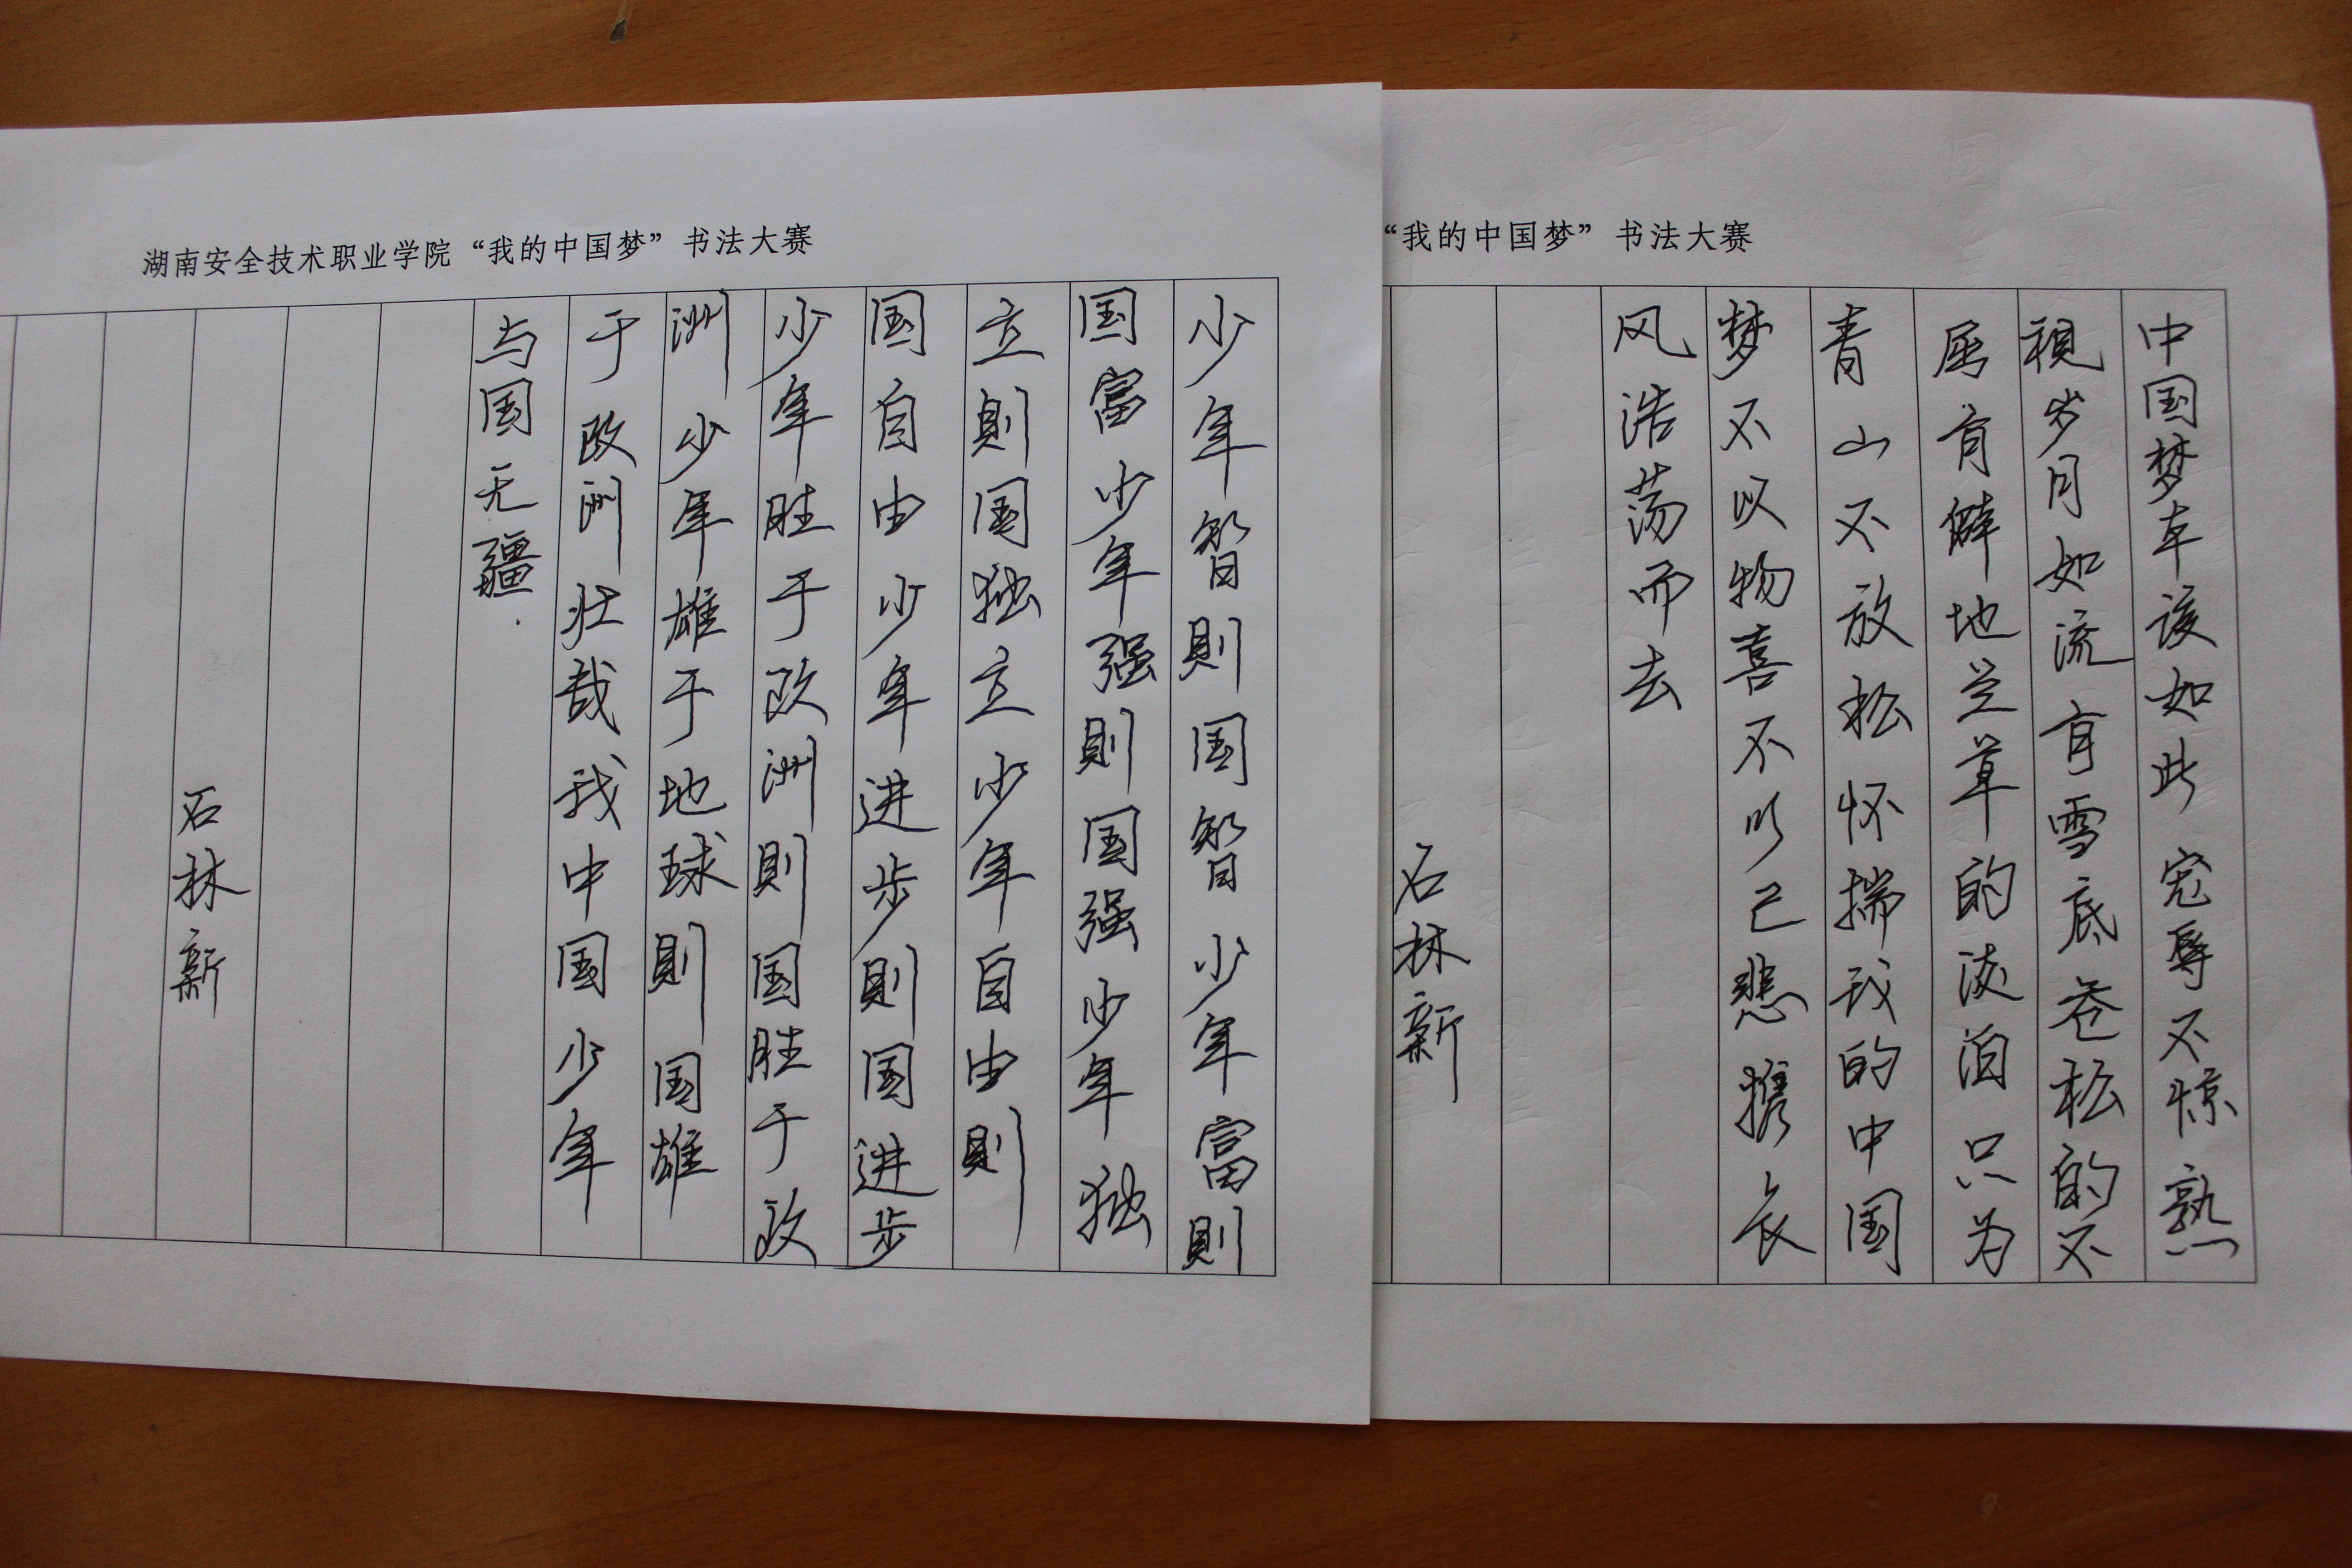 湖南安全技术职业学院“我的中国梦”书法大赛
少年智則国智少年富則
国富少年强則国强少年独
立則国独立少年自由則
国自由少年进步則国进步
少年胜于欧洲則国胜于欧
洲少年雄于地球則国雄
于欧洲壮哉我中国少年
与国无疆.
石林新
“我的中国梦”书法大赛
中国梦本该如此宠辱不惊熟
視岁月如流有雪底苍松的不
屈有僻地兰草的淡泊只为
青山不放松怀揣我的中国
梦不以物喜不以己悲携长
风浩荡而去
石林新